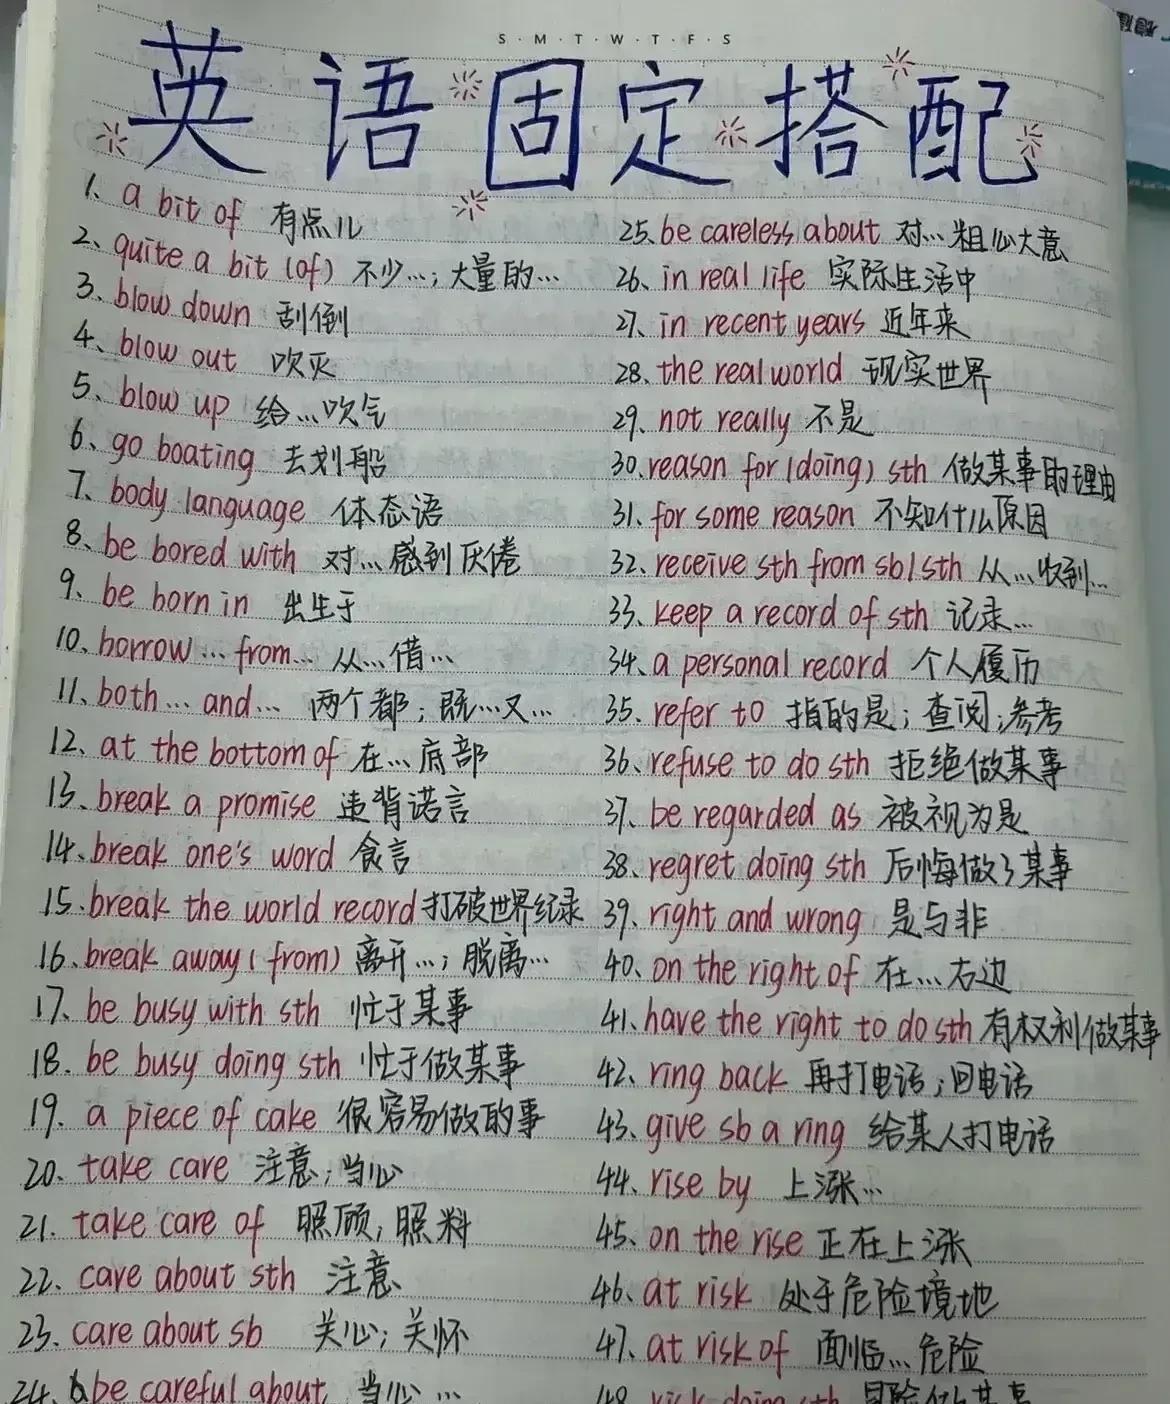 S·M·T·W·T·F·S
英语固定搭配
1、a bit of 有点儿
2、quite a bit (of) 不少…；大量的…
3、blow down 刮倒
4、blow out 吹灭
5、blow up 给…吹气
6、go boating 去划船
7、body language 体态语
8、be bored with 对…感到厌倦
9、be born in 出生于
10、borrow … from… 从…借…
11、both … and … 两个都；既…又…
12、at the bottom of 在…底部
13、break a promise 违背诺言
14、break one's word 食言
15、break the world record 打破世界纪录
16、break away (from) 离开…；脱离…
17、be busy with sth 忙于某事
18、be busy doing sth 忙于做某事
19、a piece of cake 很容易做的事
20、take care 注意；当心
21、take care of 照顾；照料
22、care about sth 注意
23、care about sb 关心；关怀
24、be careful about 当心…
25、be careless about 对…粗心大意
26、in real life 实际生活中
27、in recent years 近年来
28、the real world 现实世界
29、not really 不是
30、reason for (doing) sth 做某事的理由
31、for some reason 不知什么原因
32、receive sth from sb/sth 从…收到…
33、keep a record of sth 记录…
34、a personal record 个人履历
35、refer to 指的是；查阅；参考
36、refuse to do sth 拒绝做某事
37、be regarded as 被视为是
38、regret doing sth 后悔做了某事
39、right and wrong 是与非
40、on the right of 在…右边
41、have the right to do sth 有权利做某事
42、ring back 再打电话；回电话
43、give sb a ring 给某人打电话
44、rise by 上涨…
45、on the rise 正在上涨
46、at risk 处于危险境地
47、at risk of 面临…危险
48、risk doing sth 冒险做某事